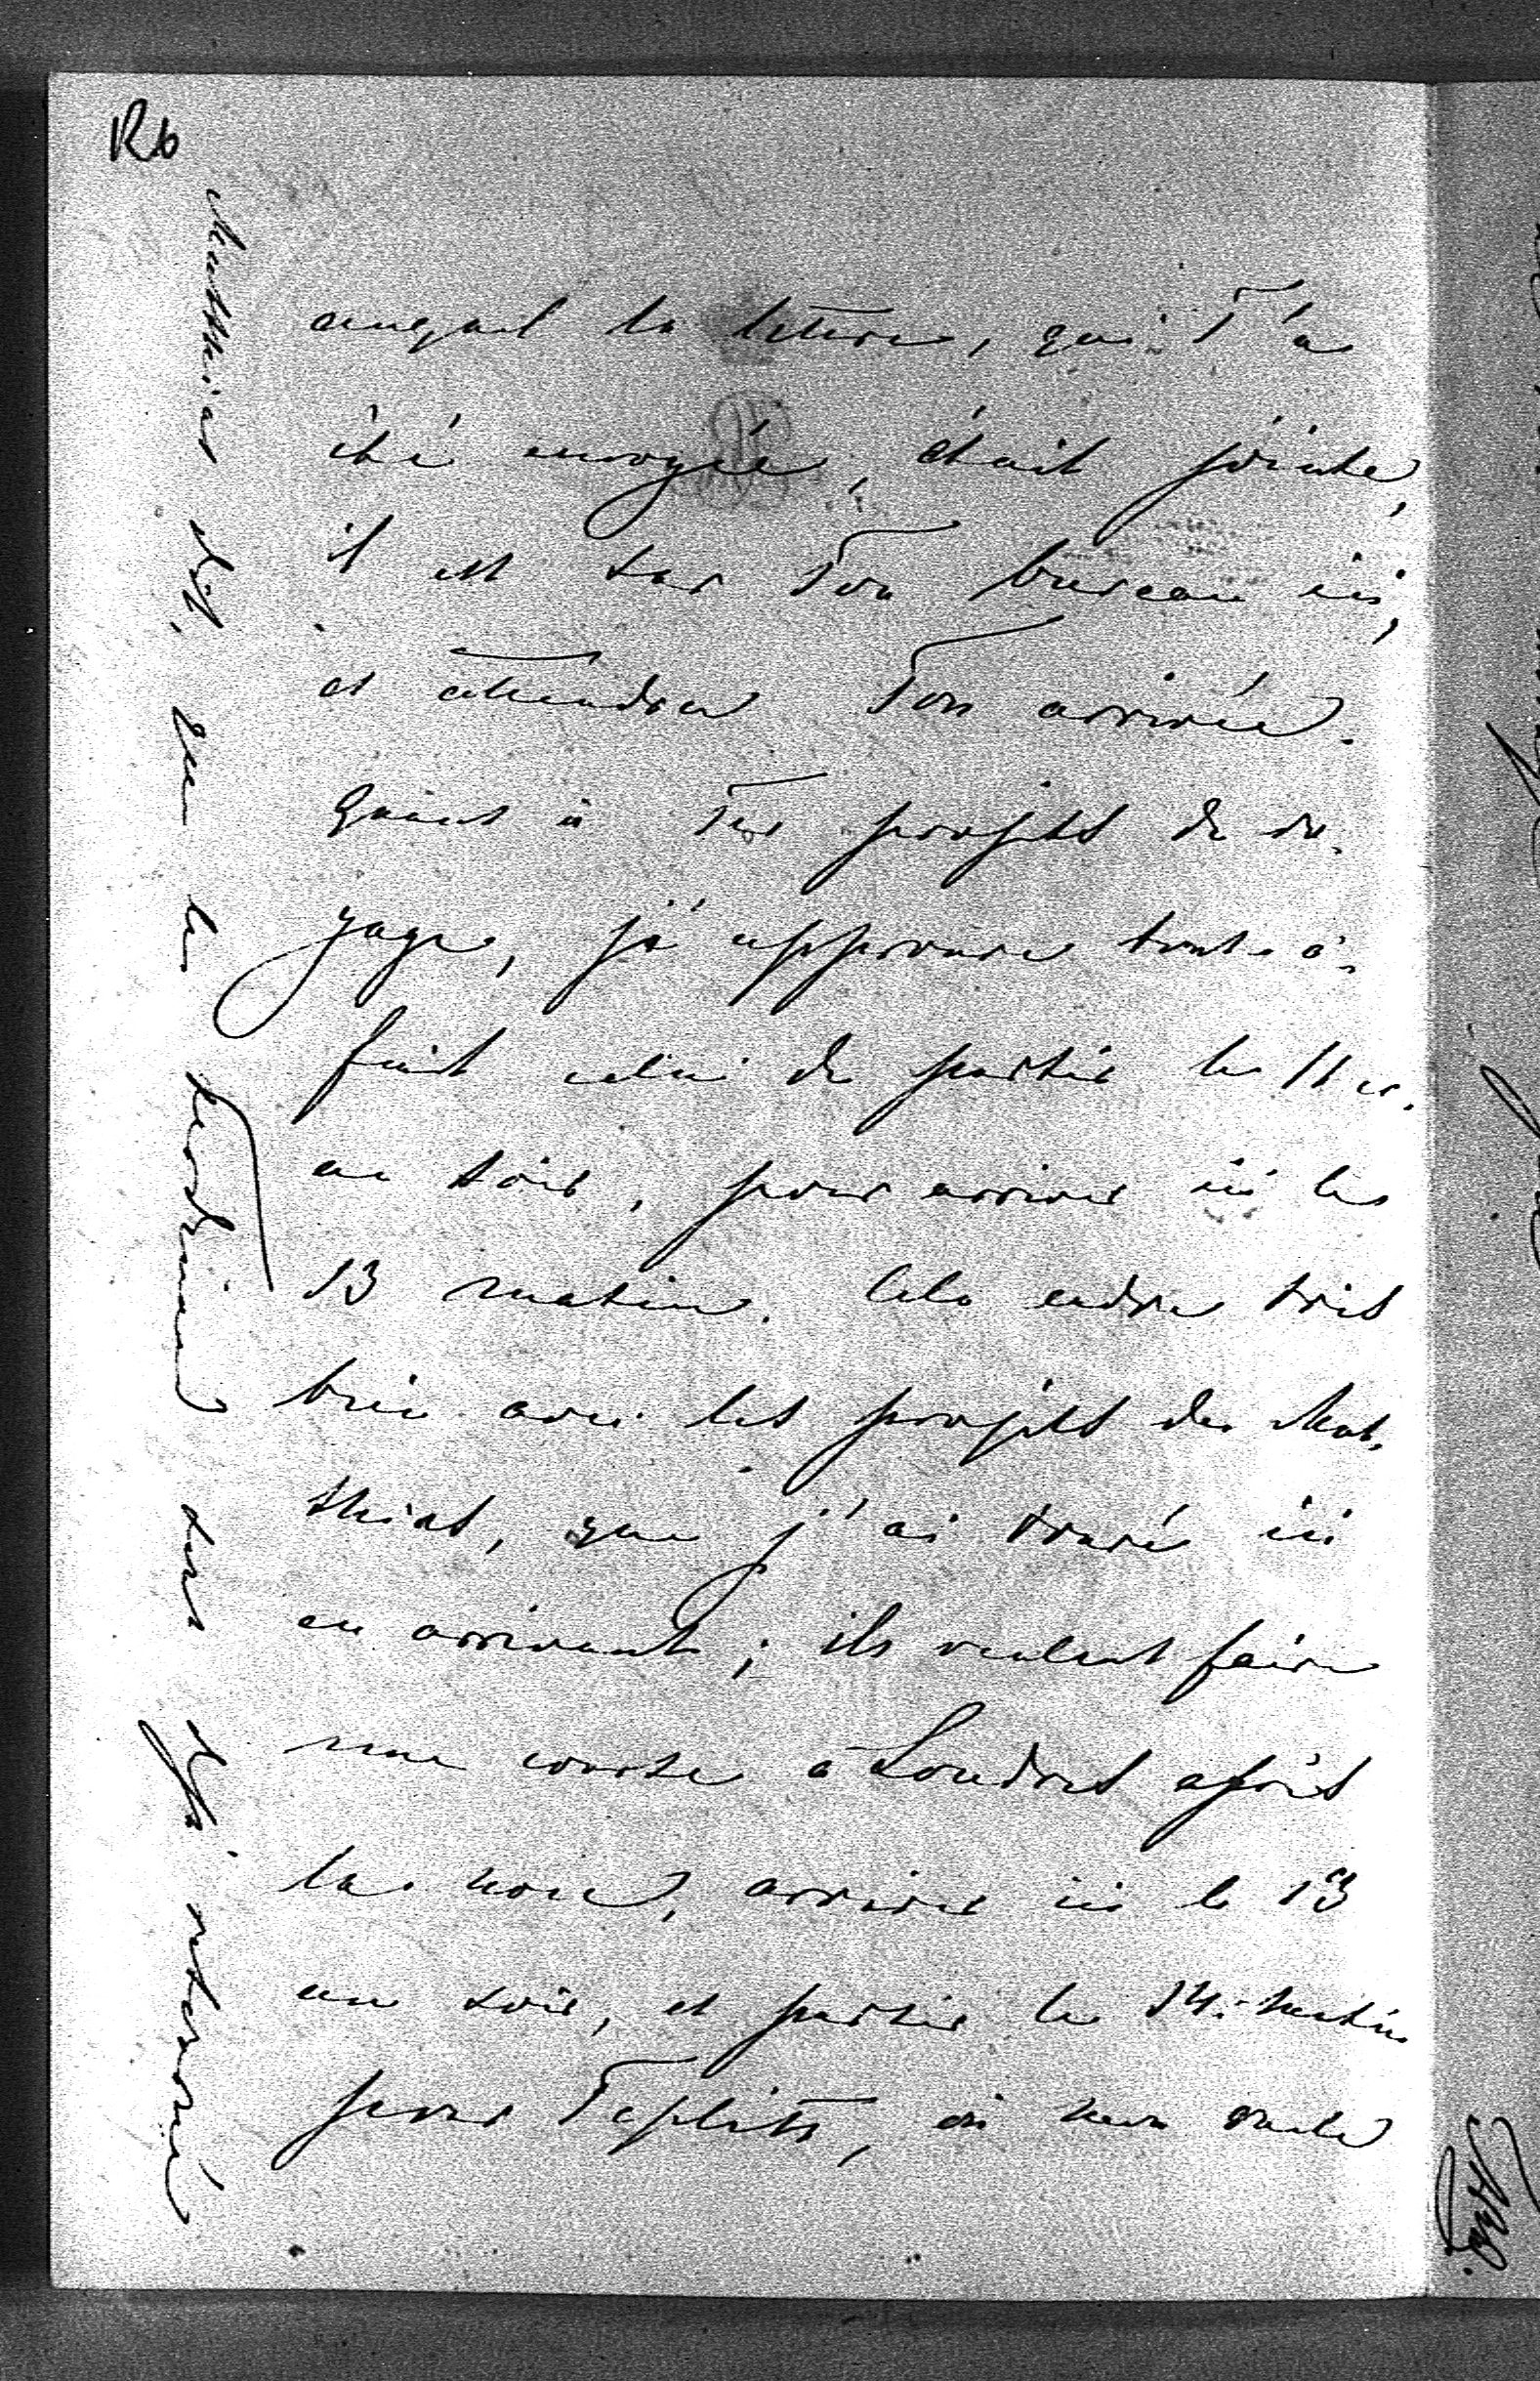 auquel la lettre, qui T'a
été envoyée, était jointe,
il est sur Ton bureau ici,
et attendra Ton arrivée.
Quant à Tes projets de vo-
yage, j'approuve tout-à-
fait celui de partir le 11 cr.
au soir, pour arriver ici le
13 matin. Cela cadre très
bien avec les projets des Mat-
thias, que j'ai trouvé ici
en arrivant; ils veulent faire
une course à Londres après
la noce, arriver ici le 13
au soir, et partir le 14 matin
pour Teplitz, où
Matthias dit, que le sont déjà retourné